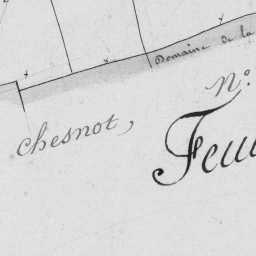 Domaine de la
N.°
chesnot,